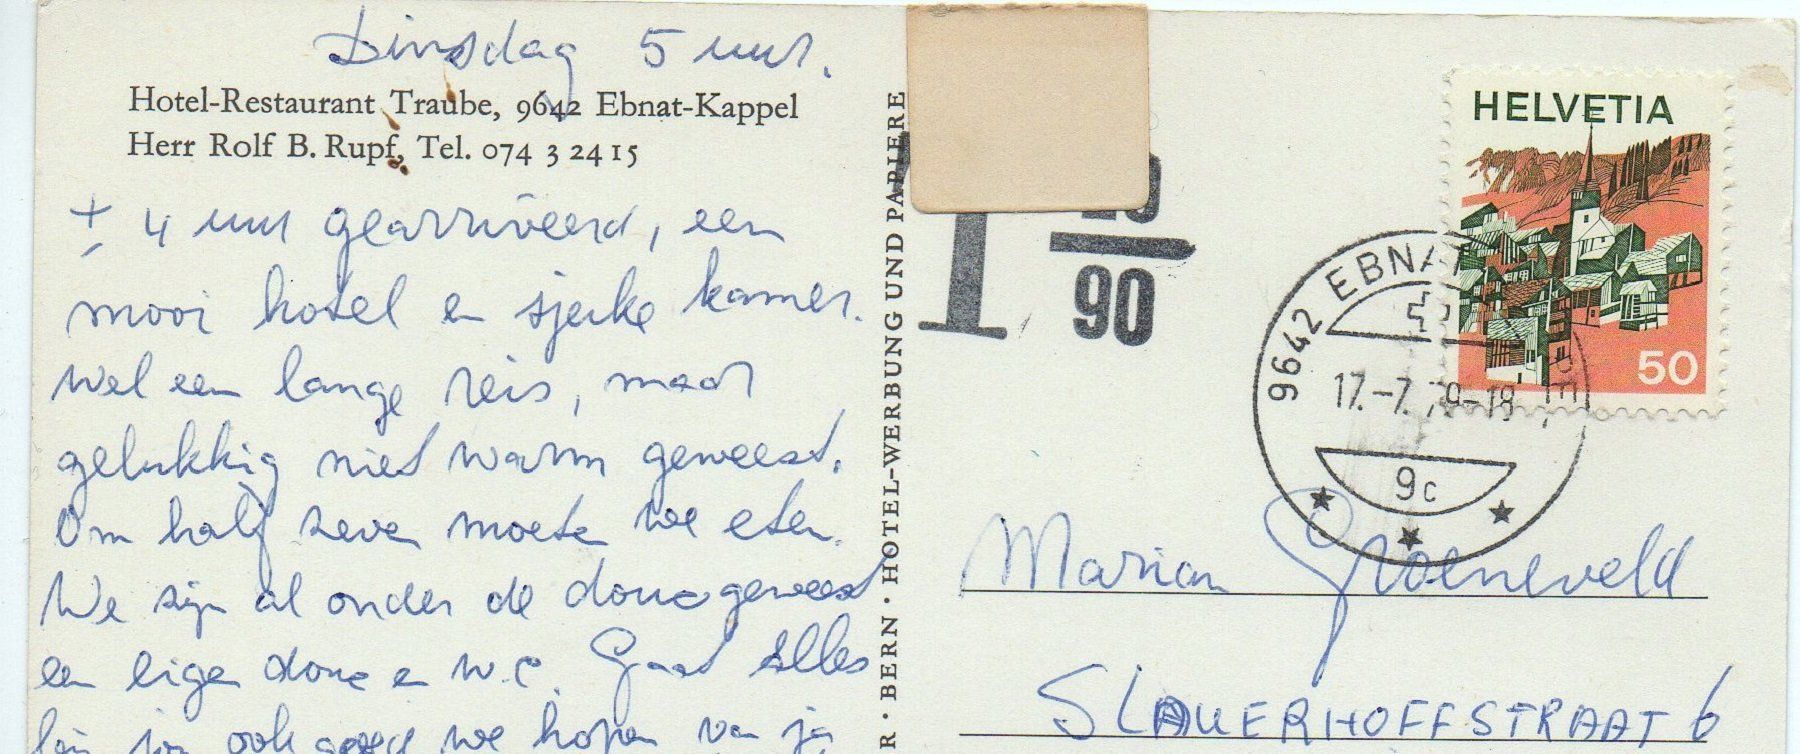 Dinsdag 5 uur.
Hotel-Restaurant Traube, 9642 Ebnat-Kappel
Herr Rolf B. Rupf, Tel. 074 3 24 15
± 4 uur gearriveerd, een
mooi hotel en sjerke kamer.
wel een lange reis, maar
gelukkig niet warm geweest.
Om half zeve moete we eten.
We zijn al onder de douc geweest
een eige douc e w.c. Gaat alles
ook goed we hopen van ja
R · BERN · HOTEL-WERBUNG UND PAPIERE
T
90
HELVETIA
50
9642 EBNAT
17.-7. 79-18
9c
Marian Groeneveld
SLAUERHOFFSTRAAT 6